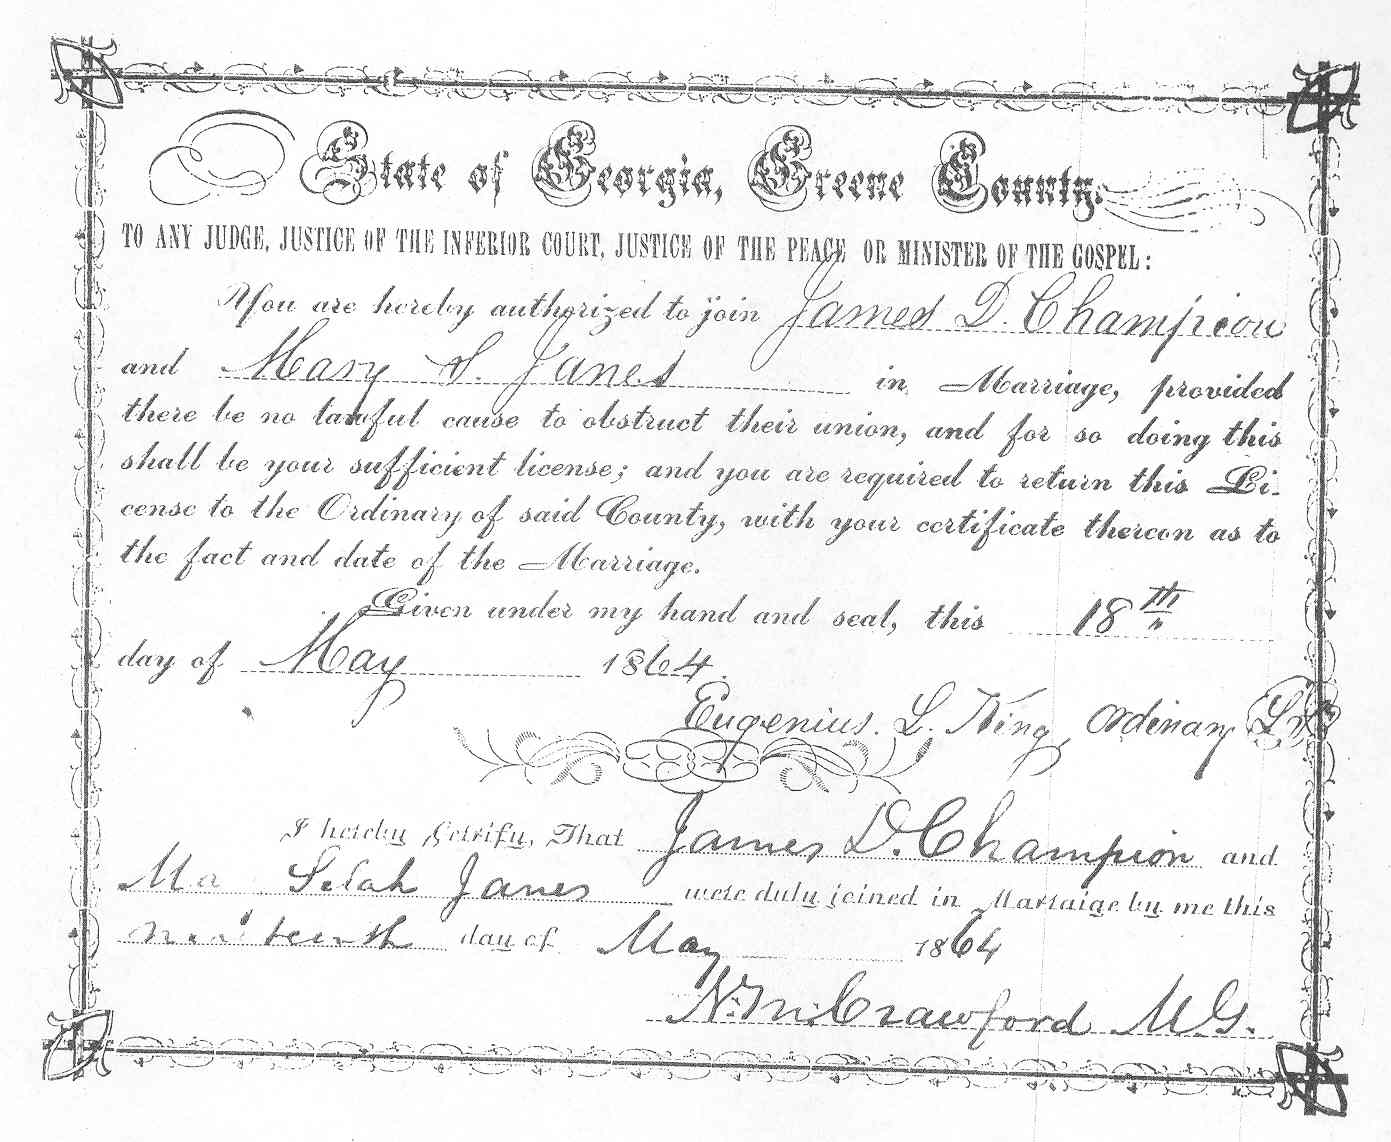 State of Georgia, Greene County.
TO ANY JUDGE, JUSTICE OF THE INFERIOR COURT, JUSTICE OF THE PEACE OR MINISTER OF THE GOSPEL:
You are hereby authorized to join James D. Champion
and Mary S. Janes in Marriage, provided
there be no lawful cause to obstruct their union, and for so doing this
shall be your sufficient license; and you are required to return this Li-
cense to the Ordinary of said County, with your certificate thereon as to
the fact and date of the Marriage.
Given under my hand and seal, this 18th
day of May 1864.
Eugenius. L. King, Ordinary
I hereby Certify, That James D. Champion and
Ma Selah Janes were duly joined in Marraige by me this
day of May 1864
N. M. Crawford M G.